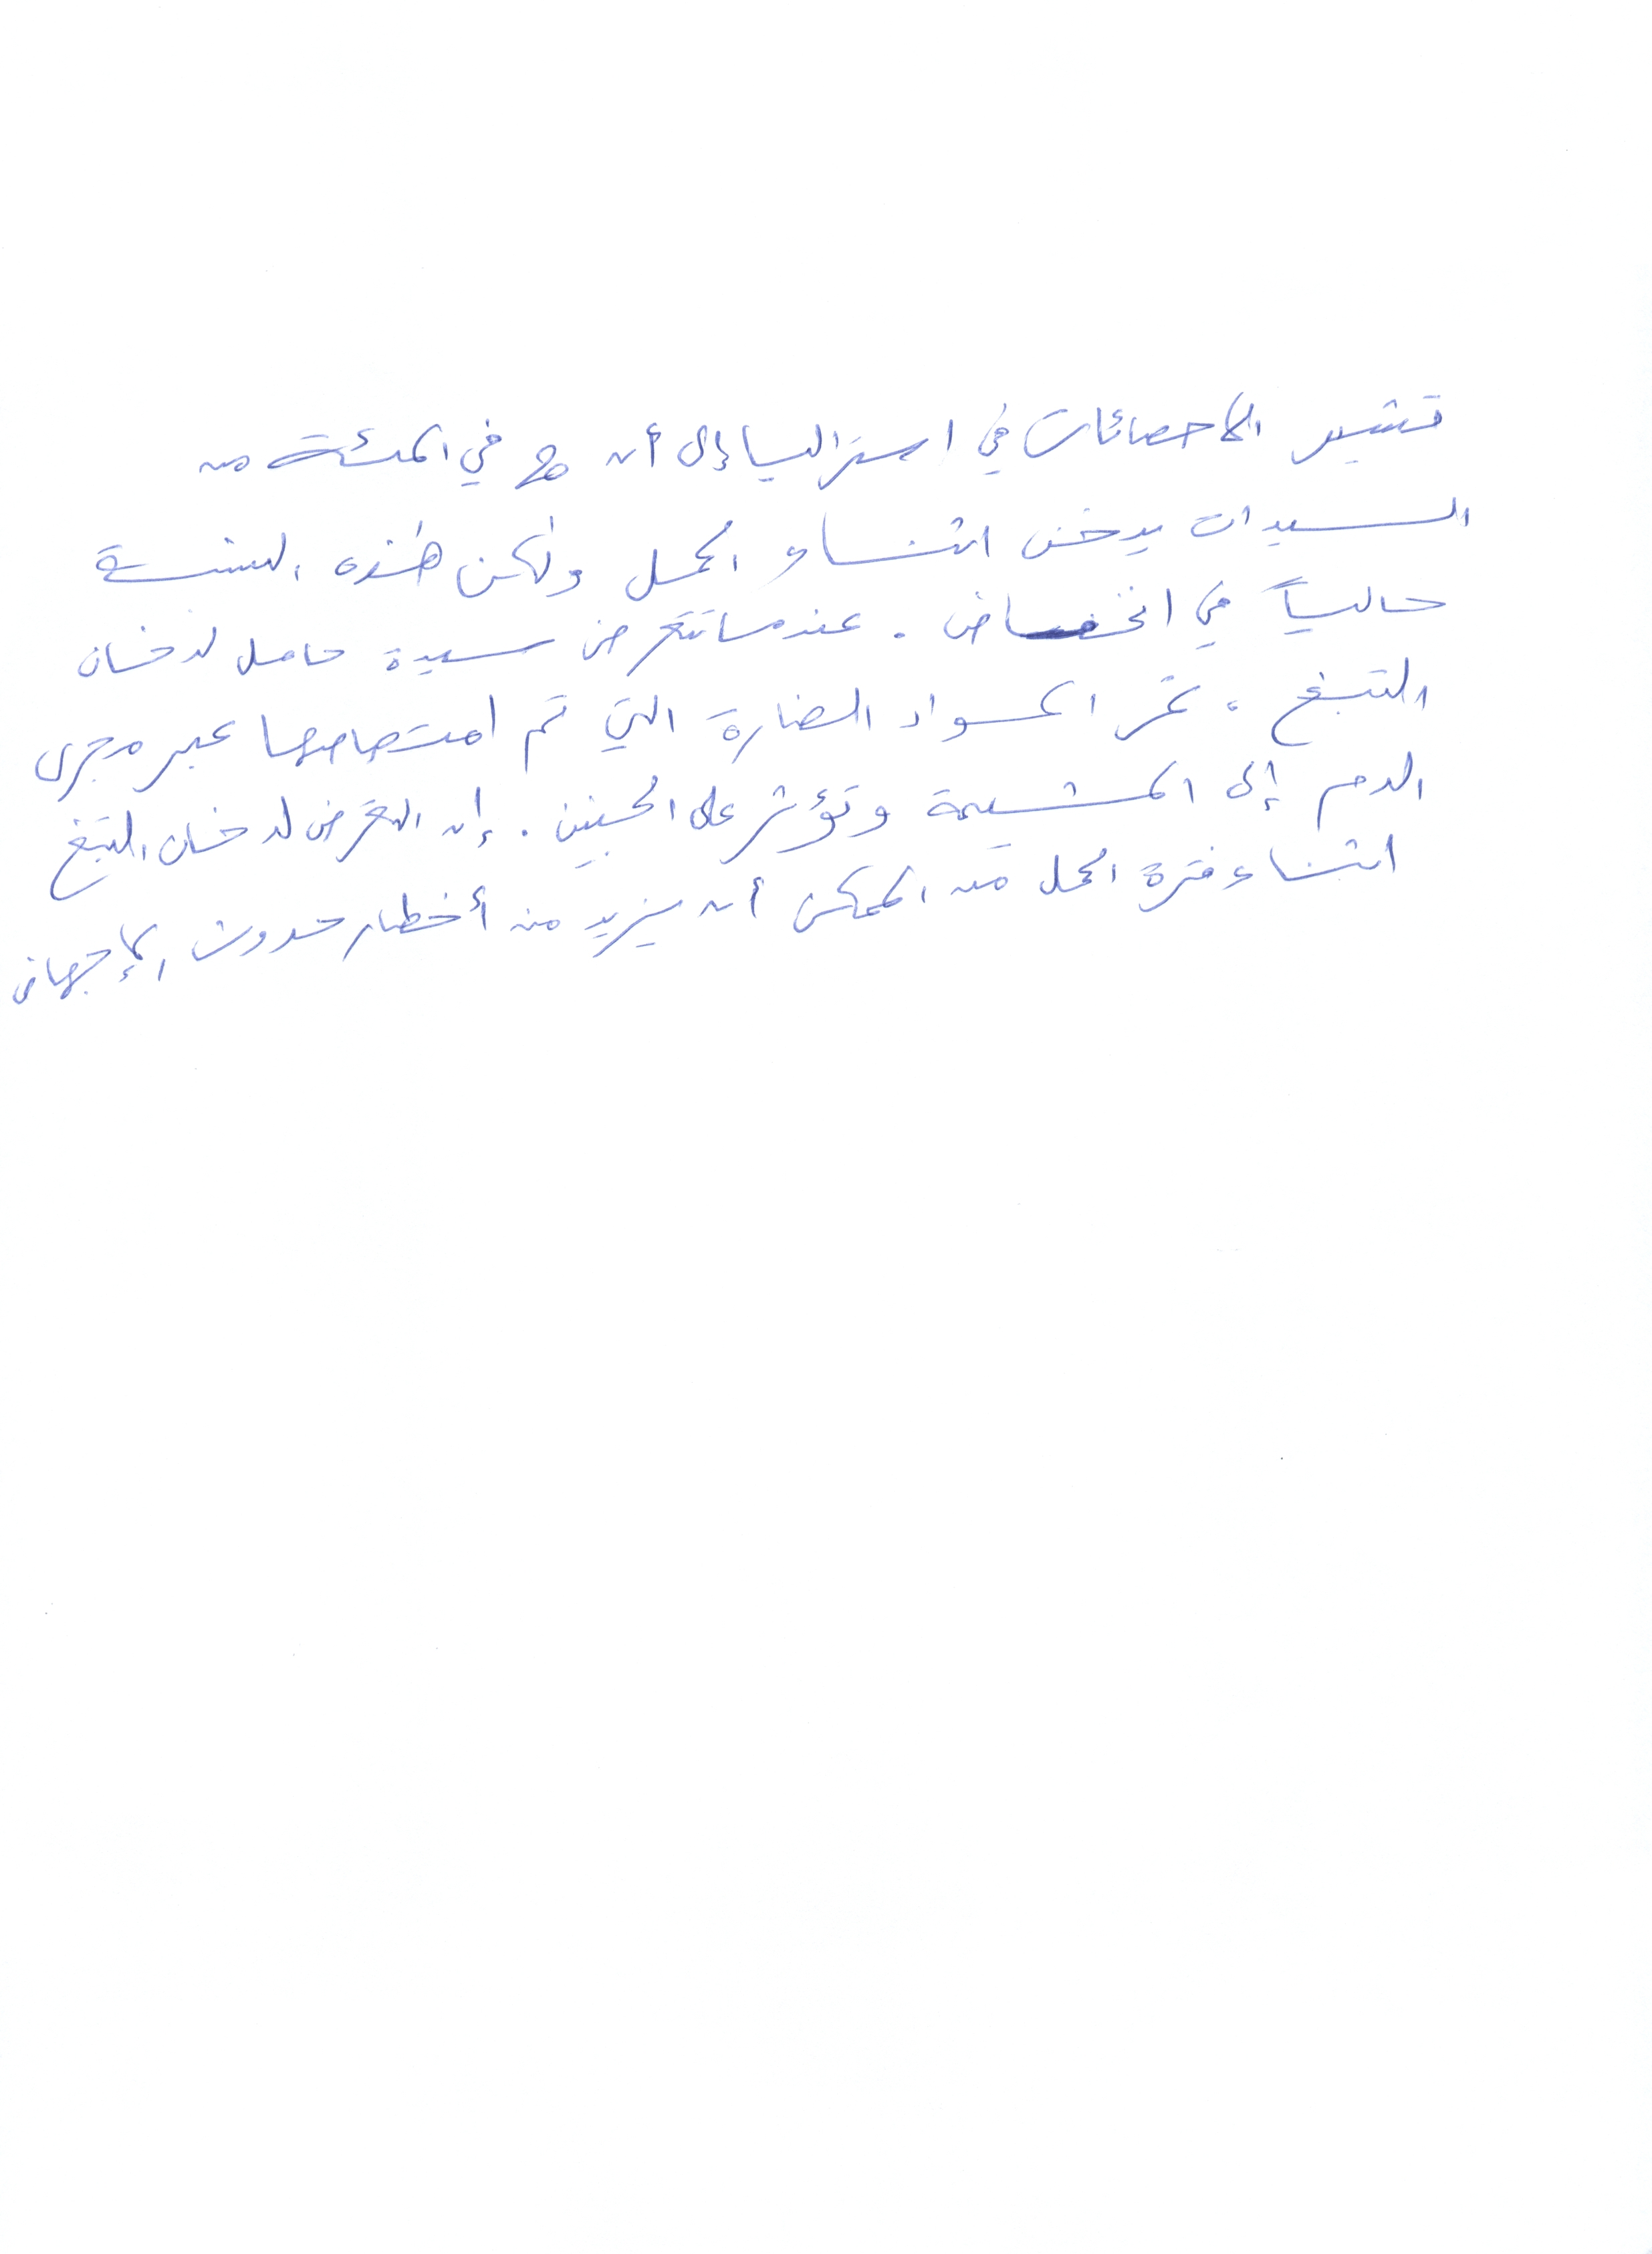 تشير الاحصائات في استراليا إلى أن 20 في المئة من
السيدات يدخن اثناء الحمل ولكن هذه النسبة
حالياً في انخفاض . عندما تتعرض سيدة حامل لدخان
التبغ ، تمر المواد الضارة التي تم امتصاصها عبر مجرى
الدم إلى المشيمة وتؤثر على الجنين . إن التعرض لدخان التبغ
اثناء فترة الحمل من الممكن أن يزيد من أخطار حدوث الإجهاض